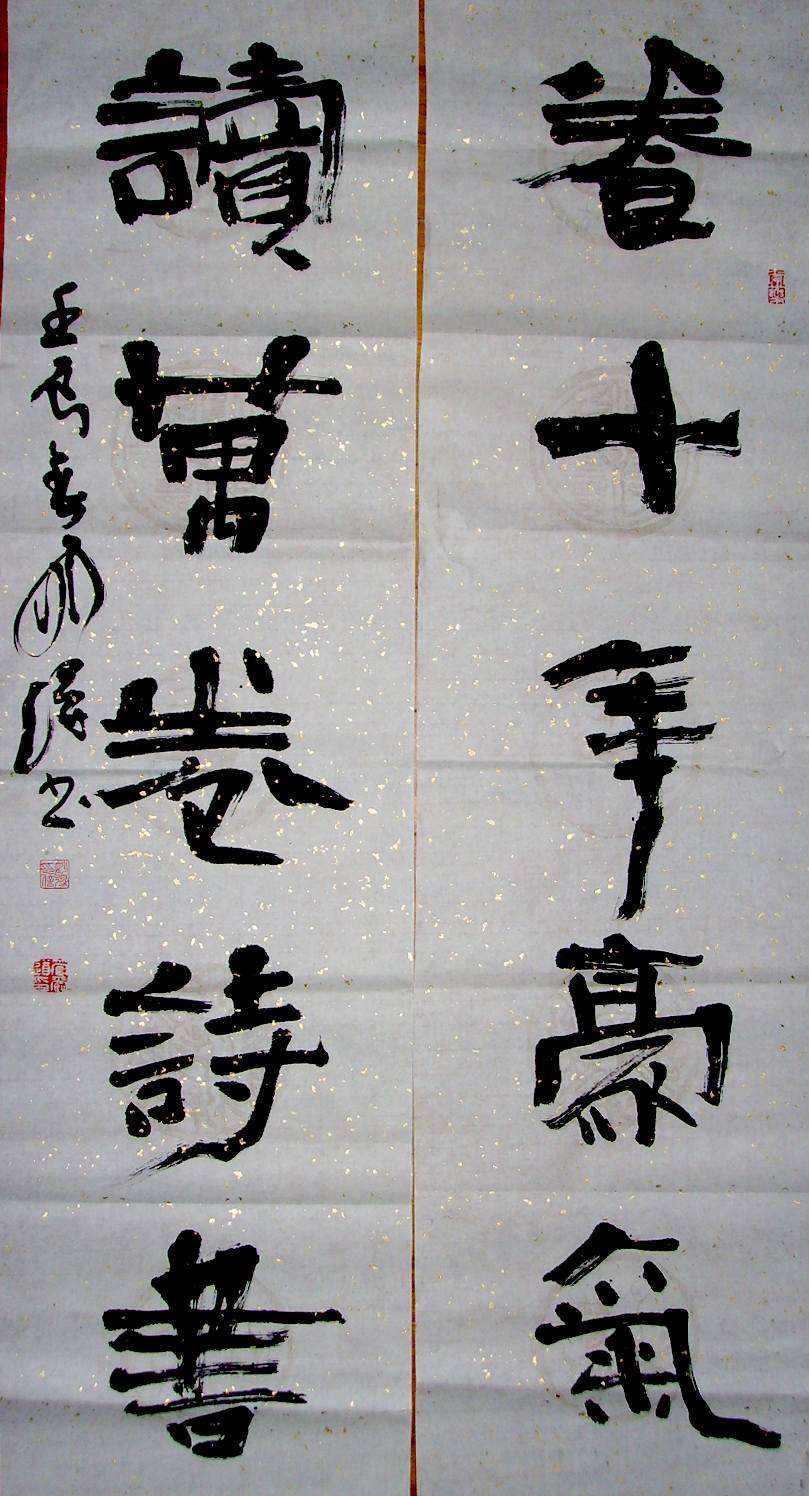 養十年豪氣
讀萬卷詩書
壬辰春
书